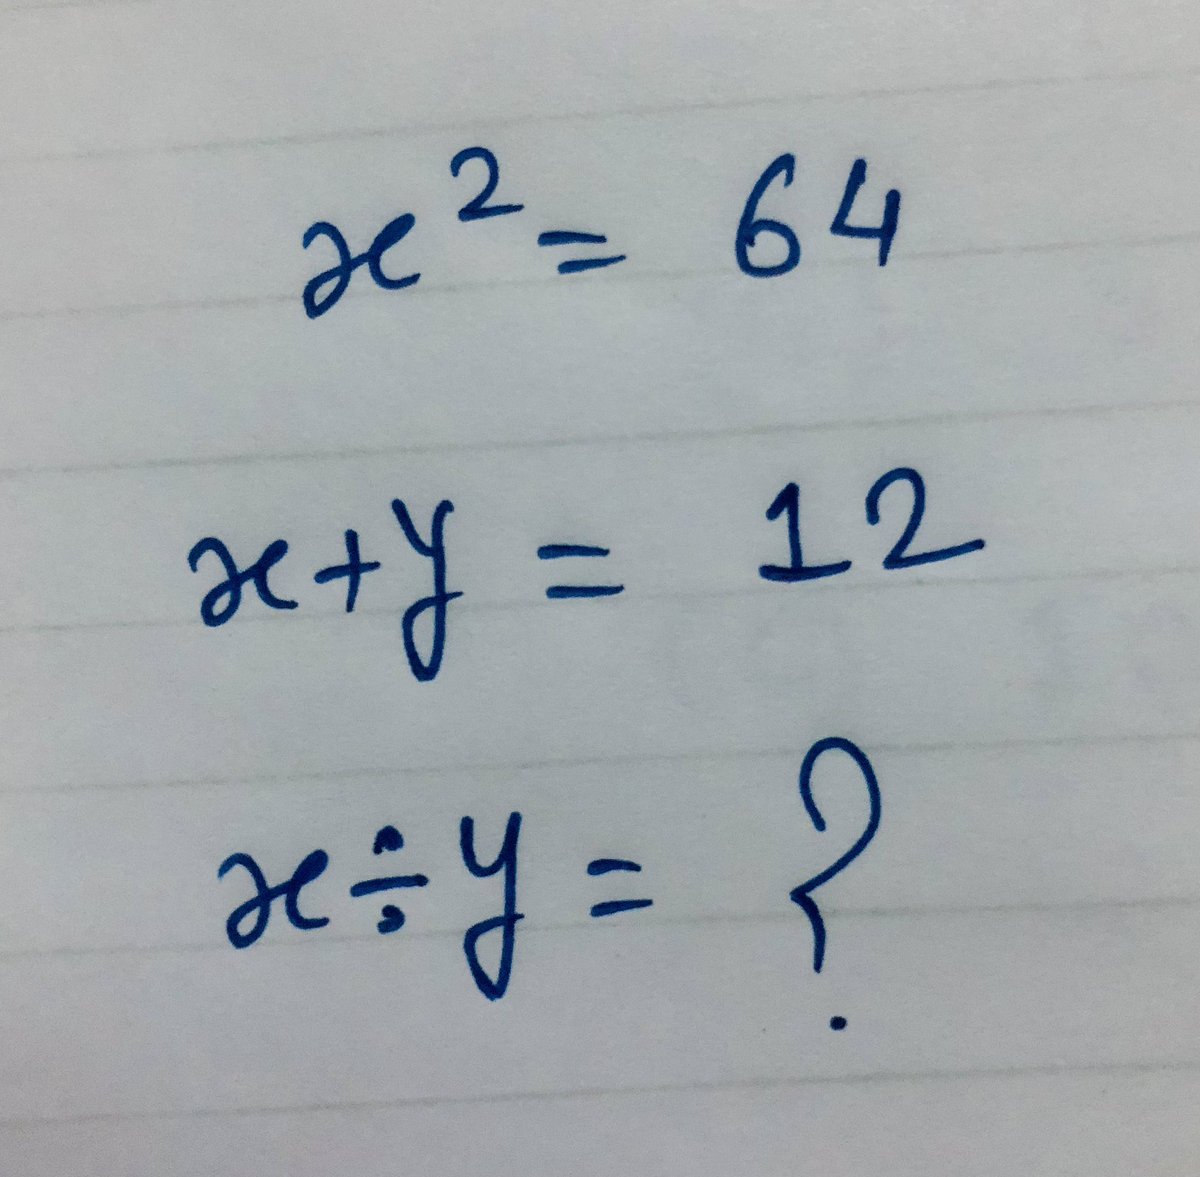 x² = 64
x+y = 12
x÷y = ?